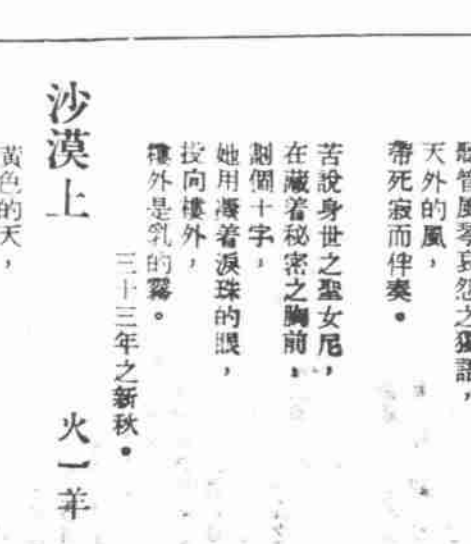 聽管風琴哀怨之獨語，
天外的風，
帶死寂而伴奏。
苦說身世之聖女尼，
在藏着秘密之胸前，
劃個十字，
她用凝着淚珠的眼，
投向樓外，
樓外是乳的霧。
三十三年之新秋。
沙漠上　火一羊
黃色的天，